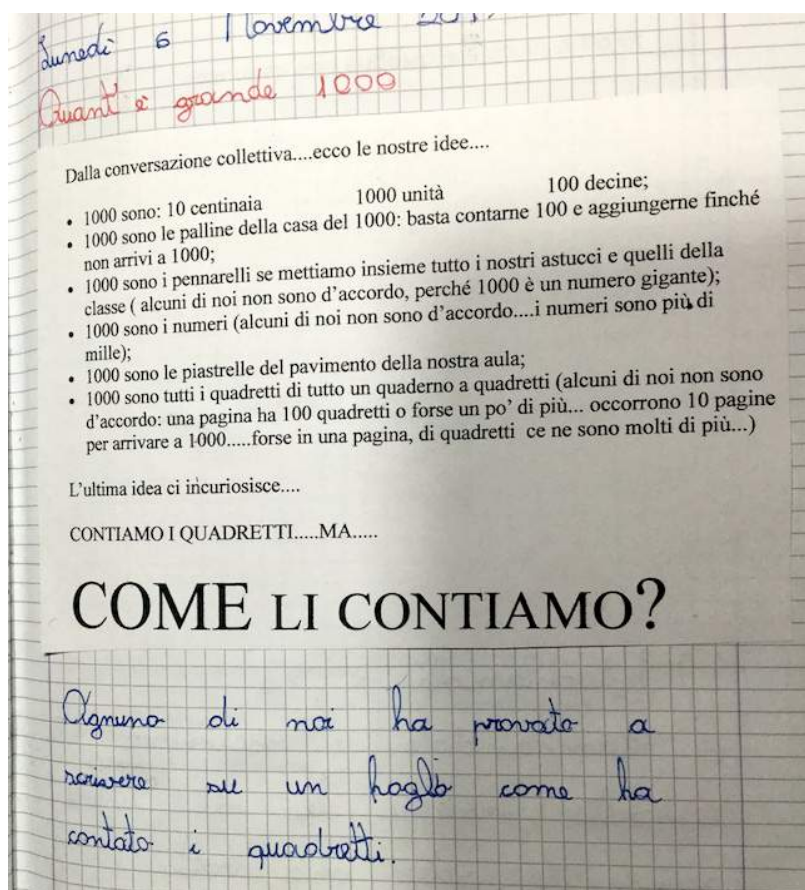 Lunedì 6 Novembre
Quant'è grande 1000
Dalla conversazione collettiva....ecco le nostre idee....
• 1000 sono: 10 centinaia 1000 unità 100 decine;
• 1000 sono le palline della casa del 1000: basta contarne 100 e aggiungerne finché
non arrivi a 1000;
• 1000 sono i pennarelli se mettiamo insieme tutto i nostri astucci e quelli della
classe ( alcuni di noi non sono d'accordo, perché 1000 è un numero gigante);
• 1000 sono i numeri (alcuni di noi non sono d'accordo....i numeri sono più di
mille);
• 1000 sono le piastrelle del pavimento della nostra aula;
• 1000 sono tutti i quadretti di tutto un quaderno a quadretti (alcuni di noi non sono
d'accordo: una pagina ha 100 quadretti o forse un po' di più... occorrono 10 pagine
per arrivare a 1000.....forse in una pagina, di quadretti ce ne sono molti di più...)
L'ultima idea ci incuriosisce....
CONTIAMO I QUADRETTI.....MA.....
COME LI CONTIAMO?
Ognuno di noi ha provato a
scrivere su un foglio come ha
contato i quadretti.